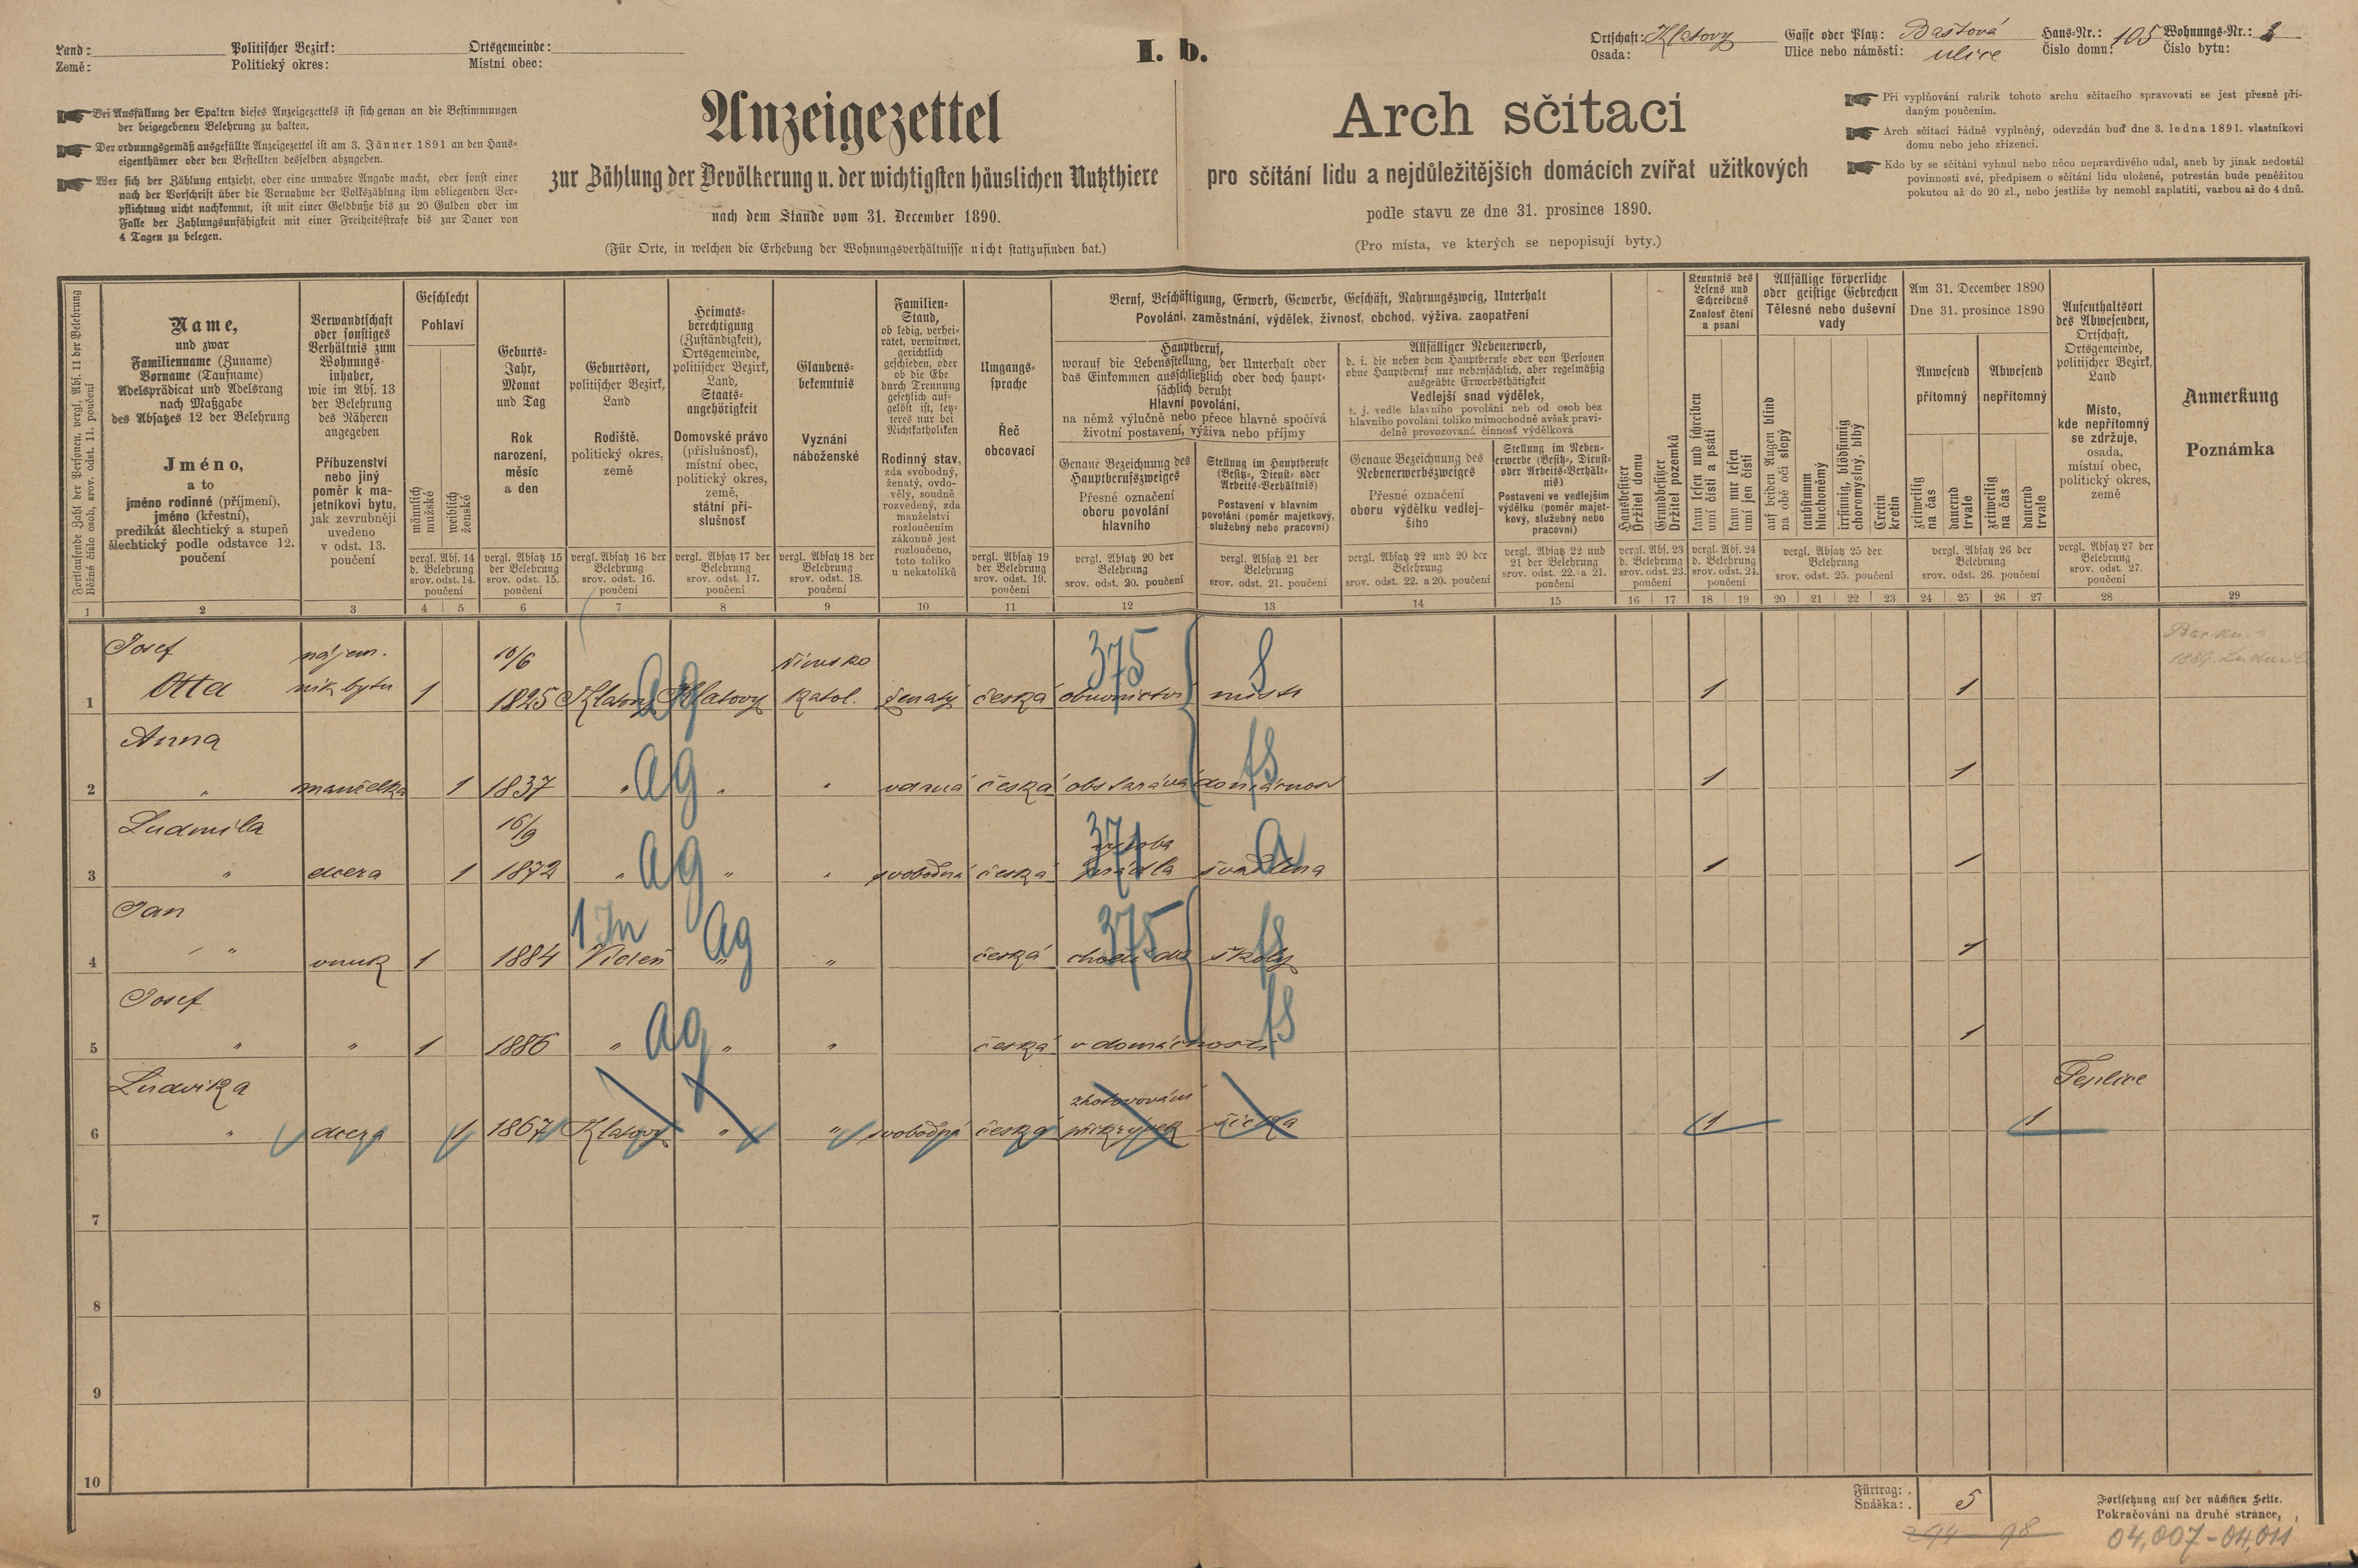 Land:
Země:
Politischer Bezirk:
Politický okres:
Ortsgemeinde:
Místní obec:
I. b.
Ortschaft: Klatovy
Osada:
Gasse oder Platz: Baštová
Ulice nebo náměstí: ulice
Haus-Nr.: 105
Číslo domu:
Wohnungs-Nr.:
Číslo bytu:
Bei Ausfüllung der Spalten dieses Anzeigezettels ist sich genau an die Bestimmungen
der beigegebenen Belehrung zu halten.
Der ordnungsgemäß ausgefüllte Anzeigezettel ist am 3. Jänner 1891 an den Haus-
eigenthümer oder den Bestellten desselben abzugeben.
Wer sich der Zählung entzieht, oder eine unwahre Angabe macht, oder sonst einer
nach der Vorschrift über die Vornahme der Volkszählung ihm obliegenden Ver-
pflichtung nicht nachkommt, ist mit einer Geldbuße bis zu 20 Gulden oder im
Falle der Zahlungsunfähigkeit mit einer Freiheitsstrafe bis zur Dauer von
4 Tagen zu belegen.
Anzeigezettel
zur Zählung der Bevölkerung u. der wichtigsten häuslichen Nutzthiere
nach dem Stande vom 31. December 1890.
(Für Orte, in welchen die Erhebung der Wohnungsverhältnisse nicht stattzufinden hat.)
Arch sčítací
pro sčítání lidu a nejdůležitějších domácích zvířat užitkových
podle stavu ze dne 31. prosince 1890.
(Pro místa, ve kterých se nepopisují byty.)
Při vyplňování rubrik tohoto archu sčítacího spravovati se jest přesně při-
daným poučením.
Arch sčítací řádně vyplněný, odevzdán buď dne 3. ledna 1891. vlastníkovi
domu nebo jeho zřízenci.
Kdo by se sčítání vyhnul nebo něco nepravdivého udal, aneb by jinak nedostál
povinnosti své, předpisem o sčítání lidu uložené, potrestán bude peněžitou
pokutou až do 20 zl., nebo jestliže by nemohl zaplatiti, vazbou až do 4 dnů.
Fortlaufende Zahl der Personen, vergl. Abs. 11 der Belehrung
Běžné číslo osob, srov. odst. 11. poučení
Name,
und zwar
Familienname (Zuname)
Vorname (Taufname)
Adelsprädicat und Adelsrang
nach Maßgabe
des Absatzes 12 der Belehrung
Jméno,
a to
jméno rodinné (příjmení),
jméno (křestní),
predikát šlechtický a stupeň
šlechtický podle odstavce 12.
poučení
Verwandtschaft
oder sonstiges
Verhältnis zum
Wohnungs-
inhaber,
wie im Abs. 13
der Belehrung
des Näheren
angegeben
Příbuzenství
nebo jiný
poměr k ma-
jetníkovi bytu,
jak zevrubněji
uvedeno
v odst. 13.
poučení
Geschlecht
Pohlaví
männlich
mužské
weiblich
ženské
vergl. Abs. 14
d. Belehrung
srov. odst. 14.
poučení
Geburts-
Jahr,
Monat
und Tag
Rok
narození,
měsíc
a den
vergl. Absatz 15
der Belehrung
srov. odst. 15.
poučení
Geburtsort,
politischer Bezirk,
Land
Rodiště,
politický okres,
země
vergl. Absatz 16 der
Belehrung
srov. odst. 16.
poučení
Heimats-
berechtigung
(Zuständigkeit),
Ortsgemeinde,
politischer Bezirk,
Land,
Staats-
angehörigkeit
Domovské právo
(příslušnosť),
místní obec,
politický okres,
země,
státní pří-
slušnosť
vergl. Absatz 17 der
Belehrung
srov. odst. 17.
poučení
Glaubens-
bekenntnis
Vyznání
náboženské
vergl. Absatz 18 der
Belehrung
srov. odst. 18.
poučení
Familien-
Stand,
ob ledig, verhei-
ratet, verwitwet,
gerichtlich
geschieden, oder
ob die Ehe
durch Trennung
gesetzlich auf-
gelöst ist, letz-
teres nur bei
Nichtkatholiken
Rodinný stav,
zda svobodný,
ženatý, ovdo-
vělý, soudně
rozvedený, zda
manželství
zákonně jest
rozloučeno,
toto toliko
u nekatolíků
Umgangs-
sprache
Řeč
obcovací
vergl. Absatz 19
der Belehrung
srov. odst. 19.
poučení
Beruf, Beschäftigung, Erwerb, Gewerbe, Geschäft, Nahrungszweig, Unterhalt
Povolání, zaměstnání, výdělek, živnosť, obchod, výživa, zaopatření
Hauptberuf,
worauf die Lebensstellung, der Unterhalt oder
das Einkommen ausschließlich oder doch haupt-
sächlich beruht
Hlavní povolání,
na němž výlučně nebo přece hlavně spočívá
životní postavení, výživa nebo příjmy
Genaue Bezeichnung des
Hauptberufszweiges
Přesné označení
oboru povolání
hlavního
vergl. Absatz 20 der
Belehrung
srov. odst. 20. poučení
Stellung im Hauptberufe
(Besitz-, Dienst- oder
Arbeits-Verhältnis)
Postavení v hlavním
povolání (poměr majetkový,
služebný nebo pracovní)
vergl. Absatz 21 der
Belehrung
srov. odst. 21. poučení
Allfälliger Nebenerwerb,
d. i. die neben dem Hauptberufe oder von Personen
ohne Hauptberuf nur nebensächlich, aber regelmäßig
ausgeübte Erwerbsthätigkeit
Vedlejší snad výdělek,
t. j. vedle hlavního povolání neb od osob bez
hlavního povolání toliko mimochodně avšak pravi-
delně provozovaná činnosť výdělková
Genaue Bezeichnung des
Nebenerwerbszweiges
Přesné označení
oboru výdělku vedlej-
šího
vergl. Absatz 22 und 20 der
Belehrung
srov. odst. 22. a 20. poučení
Stellung im Neben-
erwerbe (Besitz-, Dienst-
oder Arbeits-Verhält-
nis)
Postavení ve vedlejším
výdělku (poměr majet-
kový, služebný nebo
pracovní)
vergl. Absatz 22 und
21 der Belehrung
srov. odst. 22. a 21.
poučení
Hausbesitzer
Držitel domu
Grundbesitzer
Držitel pozemků
vergl. Abs. 23
d. Belehrung
srov. odst. 23.
poučení
Kenntnis des
Lesens und
Schreibens
Znalosť čtení
a psaní
kann lesen und schreiben
umí čísti a psáti
kann nur lesen
umí jen čísti
vergl. Abs. 24
d. Belehrung
srov. odst. 24.
poučení
Allfällige körperliche
oder geistige Gebrechen
Tělesné nebo duševní
vady
auf beiden Augen blind
na obě oči slepý
taubstumm
hluchoněmý
irrsinnig, blödsinnig
choromyslný, blbý
Cretin
kretin
vergl. Absatz 25 der
Belehrung
srov. odst. 25. poučení
Am 31. December 1890
Dne 31. prosince 1890
Anwesend
přítomný
Abwesend
nepřítomný
zeitweilig
na čas
dauernd
trvale
zeitweilig
na čas
dauernd
trvale
vergl. Absatz 26 der
Belehrung
srov. odst. 26. poučení
Aufenthaltsort
des Abwesenden,
Ortschaft,
Ortsgemeinde,
politischer Bezirk,
Land
Místo,
kde nepřítomný
se zdržuje,
osada,
místní obec,
politický okres,
země
vergl. Absatz 27 der
Belehrung
srov. odst. 27.
poučení
Anmerkung
Poznámka
1 2 3 4 5 6 7 8 9 10 11 12 13 14 15 16 17 18 19 20 21 22 23 24 25 26 27 28 29
Josef nájem. 10/6 římsko 375 S
1 Otta ník bytu 1 1825 Klatovy Ag Klatovy katol. ženatý česká obuvnictví mistr 1 1
Anna
2 " manželka 1 1837 " Ag " " vdaná česká obstarává domácnost fS 1 1
Ludmila 16/9 371 výroba a
3 " dcera 1 1872 " Ag " " svobodná česká prádla švadlena 1 1
Jan 1 In Ag 375 fS
4 " vnuk 1 1884 Vídeň " " česká chodí do školy 1
Josef
5 " " 1 1886 " Ag " " česká v domácnosti fS 1
Ludvika zhotovování Teplice
6 " dcera 1 1867 Klatovy " " svobodná česká přikrývek šička 1 1
7
8
9
10
Fürtrag:
Snáška: 5
Fortsetzung auf der nächsten Seite.
Pokračování na druhé stránce.
294-98
04,007-04,011